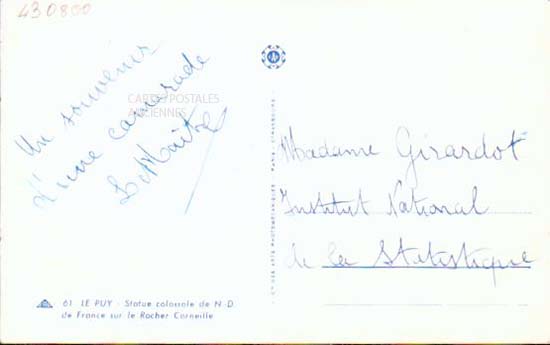 430800
Un souvenir
d'une camarade
CARTES POSTALES
ANCIENNES
Madame Girardot
Institut National
de la Statistique
61 LE PUY - Statue colossale de N-D.
de France sur le Rocher Corneille